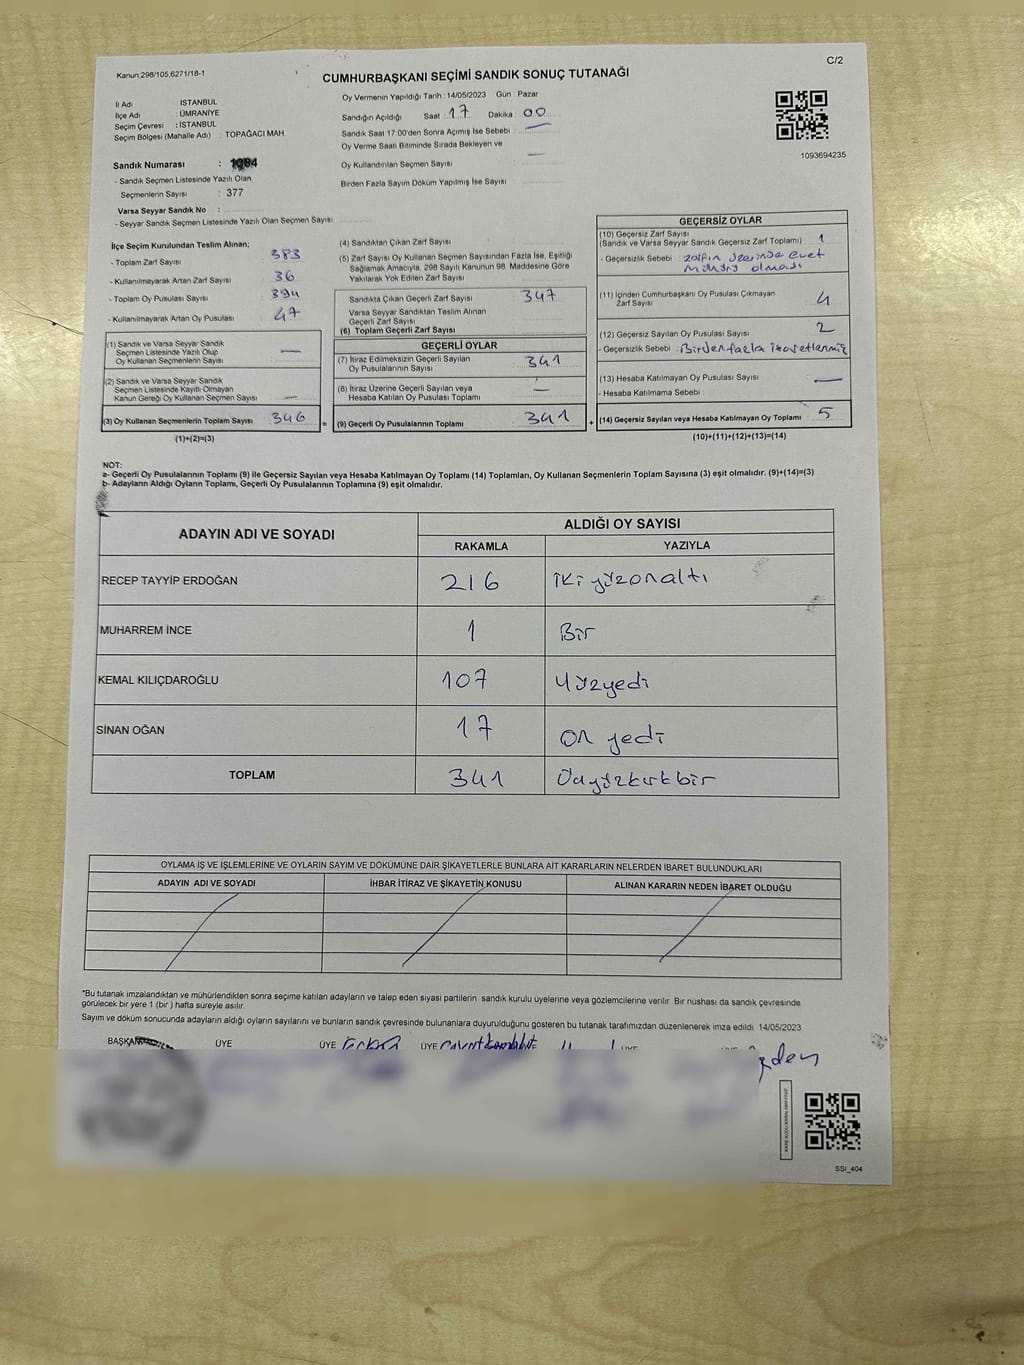 C/2
Kanun 298/105,6271/18-1
CUMHURBAŞKANI SEÇİMİ SANDIK SONUÇ TUTANAĞI
İl Adı : İSTANBUL
İlçe Adı : ÜMRANİYE
Seçim Çevresi : İSTANBUL
Seçim Bölgesi (Mahalle Adı) : TOPAĞACI MAH.
Sandık Numarası : 1094
- Sandık Seçmen Listesinde Yazılı Olan
Seçmenlerin Sayısı : 377
Varsa Seyyar Sandık No :
- Seyyar Sandık Seçmen Listesinde Yazılı Olan Seçmen Sayısı
Oy Vermenin Yapıldığı Tarih : 14/05/2023 Gün : Pazar
Sandığın Açıldığı Saat : 17 Dakika : 00
Sandık Saat 17:00'den Sonra Açılmış İse Sebebi : —
Oy Verme Saati Bitiminde Sırada Bekleyen ve
Oy Kullandırılan Seçmen Sayısı : —
Birden Fazla Sayım Döküm Yapılmış İse Sayısı :
1093694235
İlçe Seçim Kurulundan Teslim Alınan;
- Toplam Zarf Sayısı : 383
- Kullanılmayarak Artan Zarf Sayısı : 36
- Toplam Oy Pusulası Sayısı : 394
- Kullanılmayarak Artan Oy Pusulası : 47
(1) Sandık ve Varsa Seyyar Sandık
Seçmen Listesinde Yazılı Olup
Oy Kullanan Seçmenlerin Sayısı : —
(2) Sandık ve Varsa Seyyar Sandık
Seçmen Listesinde Kayıtlı Olmayan
Kanun Gereği Oy Kullanan Seçmen Sayısı : —
(3) Oy Kullanan Seçmenlerin Toplam Sayısı : 346
(1)+(2)=(3)
=
(4) Sandıktan Çıkan Zarf Sayısı :
(5) Zarf Sayısı Oy Kullanan Seçmen Sayısından Fazla İse, Eşitliği
Sağlamak Amacıyla, 298 Sayılı Kanunun 98. Maddesine Göre
Yakılarak Yok Edilen Zarf Sayısı :
Sandıkta Çıkan Geçerli Zarf Sayısı : 347
Varsa Seyyar Sandıktan Teslim Alınan
Geçerli Zarf Sayısı :
(6) Toplam Geçerli Zarf Sayısı :
GEÇERLİ OYLAR
(7) İtiraz Edilmeksizin Geçerli Sayılan
Oy Pusulalarının Sayısı : 341
(8) İtiraz Üzerine Geçerli Sayılan veya
Hesaba Katılan Oy Pusulası Toplamı : —
(9) Geçerli Oy Pusulalarının Toplamı : 341
+
GEÇERSİZ OYLAR
(10) Geçersiz Zarf Sayısı
(Sandık ve Varsa Seyyar Sandık Geçersiz Zarf Toplamı) : 1
- Geçersizlik Sebebi : zarfın üzerinde evet
mührü olması
(11) İçinden Cumhurbaşkanı Oy Pusulası Çıkmayan
Zarf Sayısı : 4
(12) Geçersiz Sayılan Oy Pusulası Sayısı : 2
- Geçersizlik Sebebi : Birden fazla işaretlenmiş
(13) Hesaba Katılmayan Oy Pusulası Sayısı : —
- Hesaba Katılmama Sebebi :
(14) Geçersiz Sayılan veya Hesaba Katılmayan Oy Toplamı : 5
(10)+(11)+(12)+(13)=(14)
NOT:
a- Geçerli Oy Pusulalarının Toplamı (9) ile Geçersiz Sayılan veya Hesaba Katılmayan Oy Toplamı (14) Toplamları, Oy Kullanan Seçmenlerin Toplam Sayısına (3) eşit olmalıdır. (9)+(14)=(3)
b- Adayların Aldığı Oyların Toplamı, Geçerli Oy Pusulalarının Toplamına (9) eşit olmalıdır.
ADAYIN ADI VE SOYADI ALDIĞI OY SAYISI
RAKAMLA YAZIYLA
RECEP TAYYİP ERDOĞAN 216 iki yüzonaltı
MUHARREM İNCE 1 Bir
KEMAL KILIÇDAROĞLU 107 Yüzyedi
SİNAN OĞAN 17 On yedi
TOPLAM 341 Üçyüzkırkbir
OYLAMA İŞ VE İŞLEMLERİNE VE OYLARIN SAYIM VE DÖKÜMÜNE DAİR ŞİKAYETLERLE BUNLARA AİT KARARLARIN NELERDEN İBARET BULUNDUKLARI
ADAYIN ADI VE SOYADI İHBAR İTİRAZ VE ŞİKAYETİN KONUSU ALINAN KARARIN NEDEN İBARET OLDUĞU
*Bu tutanak imzalandıktan ve mühürlendikten sonra seçime katılan adayların ve talep eden siyasi partilerin sandık kurulu üyelerine veya gözlemcilerine verilir. Bir nüshası da sandık çevresinde
görülecek bir yere 1 (bir ) hafta süreyle asılır.
Sayım ve döküm sonucunda adayların aldığı oyların sayılarını ve bunların sandık çevresinde bulunanlara duyurulduğunu gösteren bu tutanak tarafımızdan düzenlenerek imza edildi. 14/05/2023
BAŞKAN ÜYE ÜYE ÜYE
SSI_404